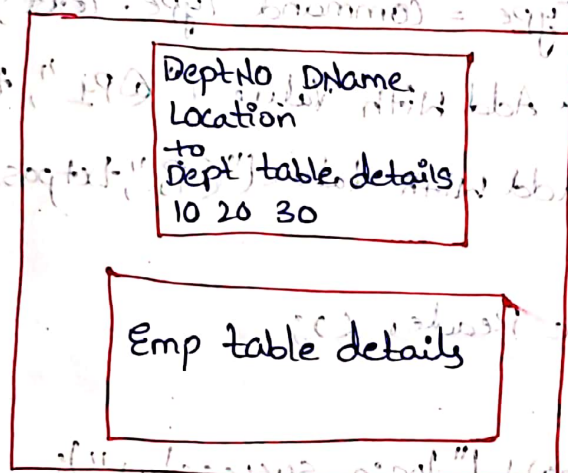 DeptNo DName.
Location
to
Dept table details
10 20 30
Emp table details